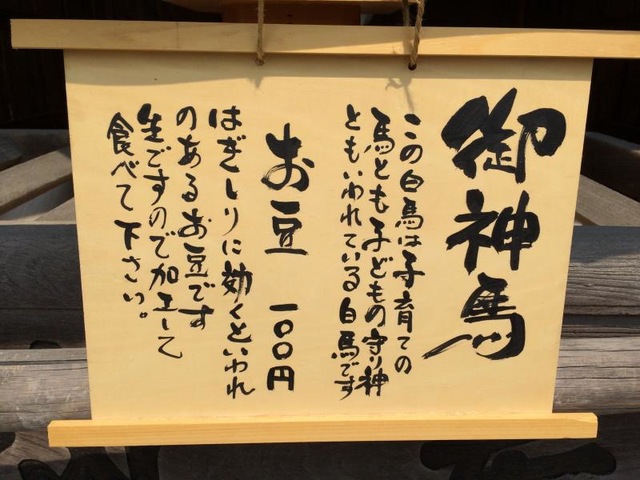 御神馬
この白馬は子育ての
馬とも子どもの守り神
ともいわれている白馬です
お豆 一〇〇円
はぎしりに効くといわれ
のあるお豆です
生ですので加工して
食べて下さい。